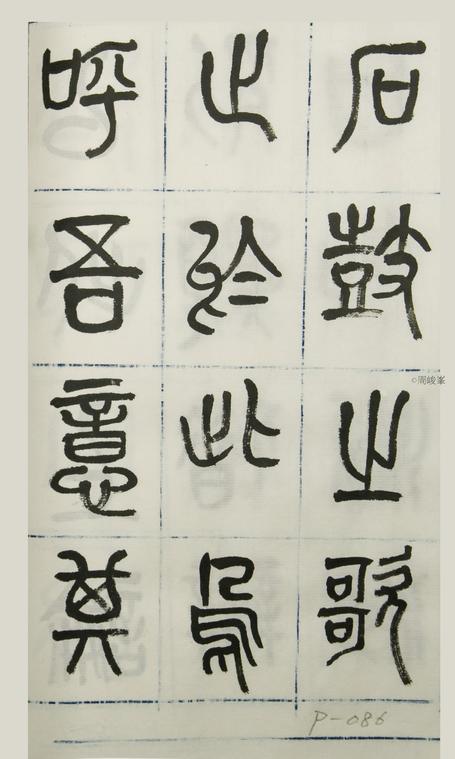 石鼓之歌
止於此烏
呼吾意其
P-086
©周峻峯